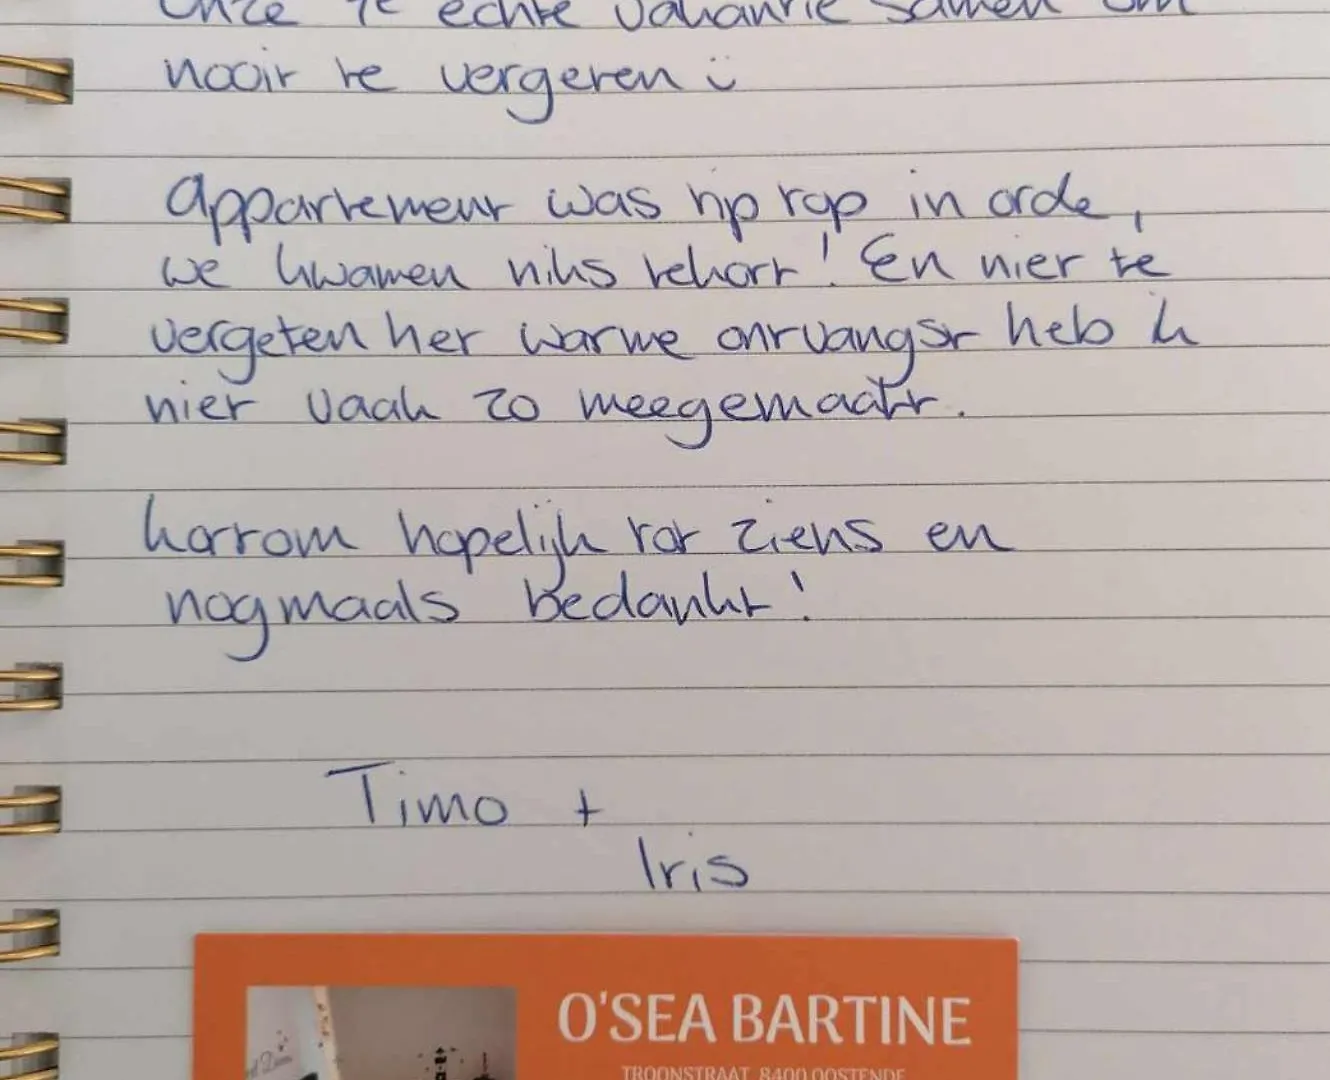 Onze 1e echte vakantie samen om
nooit te vergeten ü
Appartement was tip top in orde,
we kwamen niks tekort! En niet te
vergeten het warme ontvangst heb ik
niet vaak zo meegemaakt.
kortom hopelijk tot ziens en
nogmaals bedankt!
Timo +
Iris
O'SEA BARTINE
TROONSTRAAT, 8400 OOSTENDE